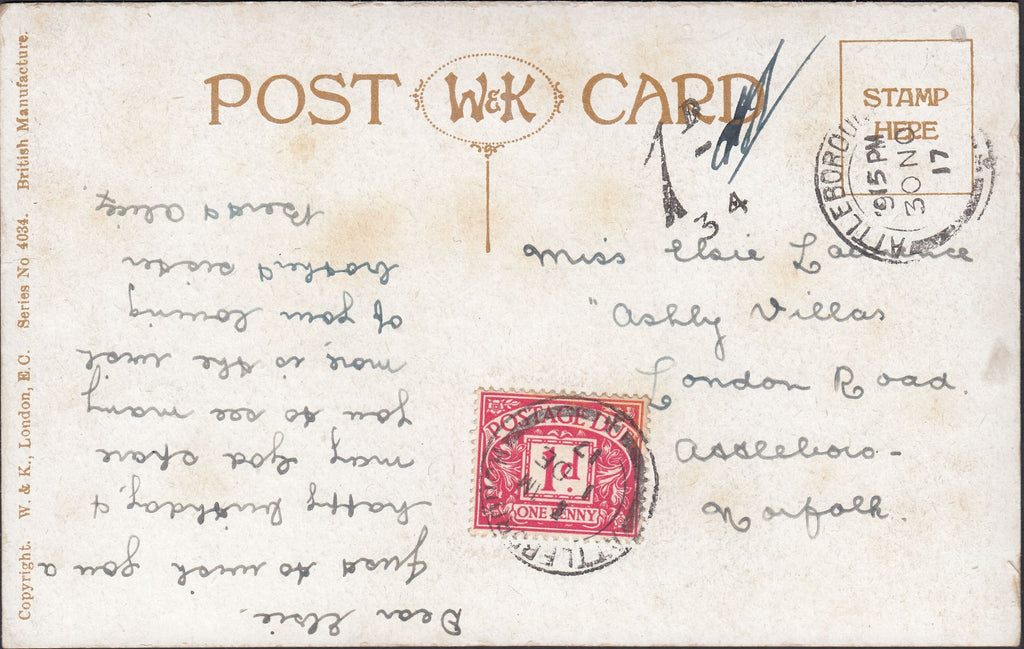 POST W&K CARD
STAMP
HERE
ATTLEBOROUGH
915PM
30 NO
17
1D
34
Miss Elsie Lawrence
"Ashly Villas
London Road
Attleboro-
Norfolk.
POSTAGE DUE
1d
ONE PENNY
1 DE
17
Dear Elsie.
Just to wish you a
happy birthday, &
may God spare
you to see many
more, is the wish
of your loving
brother & sister
Bert & Alice
Copyright. W. & K., London, E.C. Series No 4034. British Manufacture.